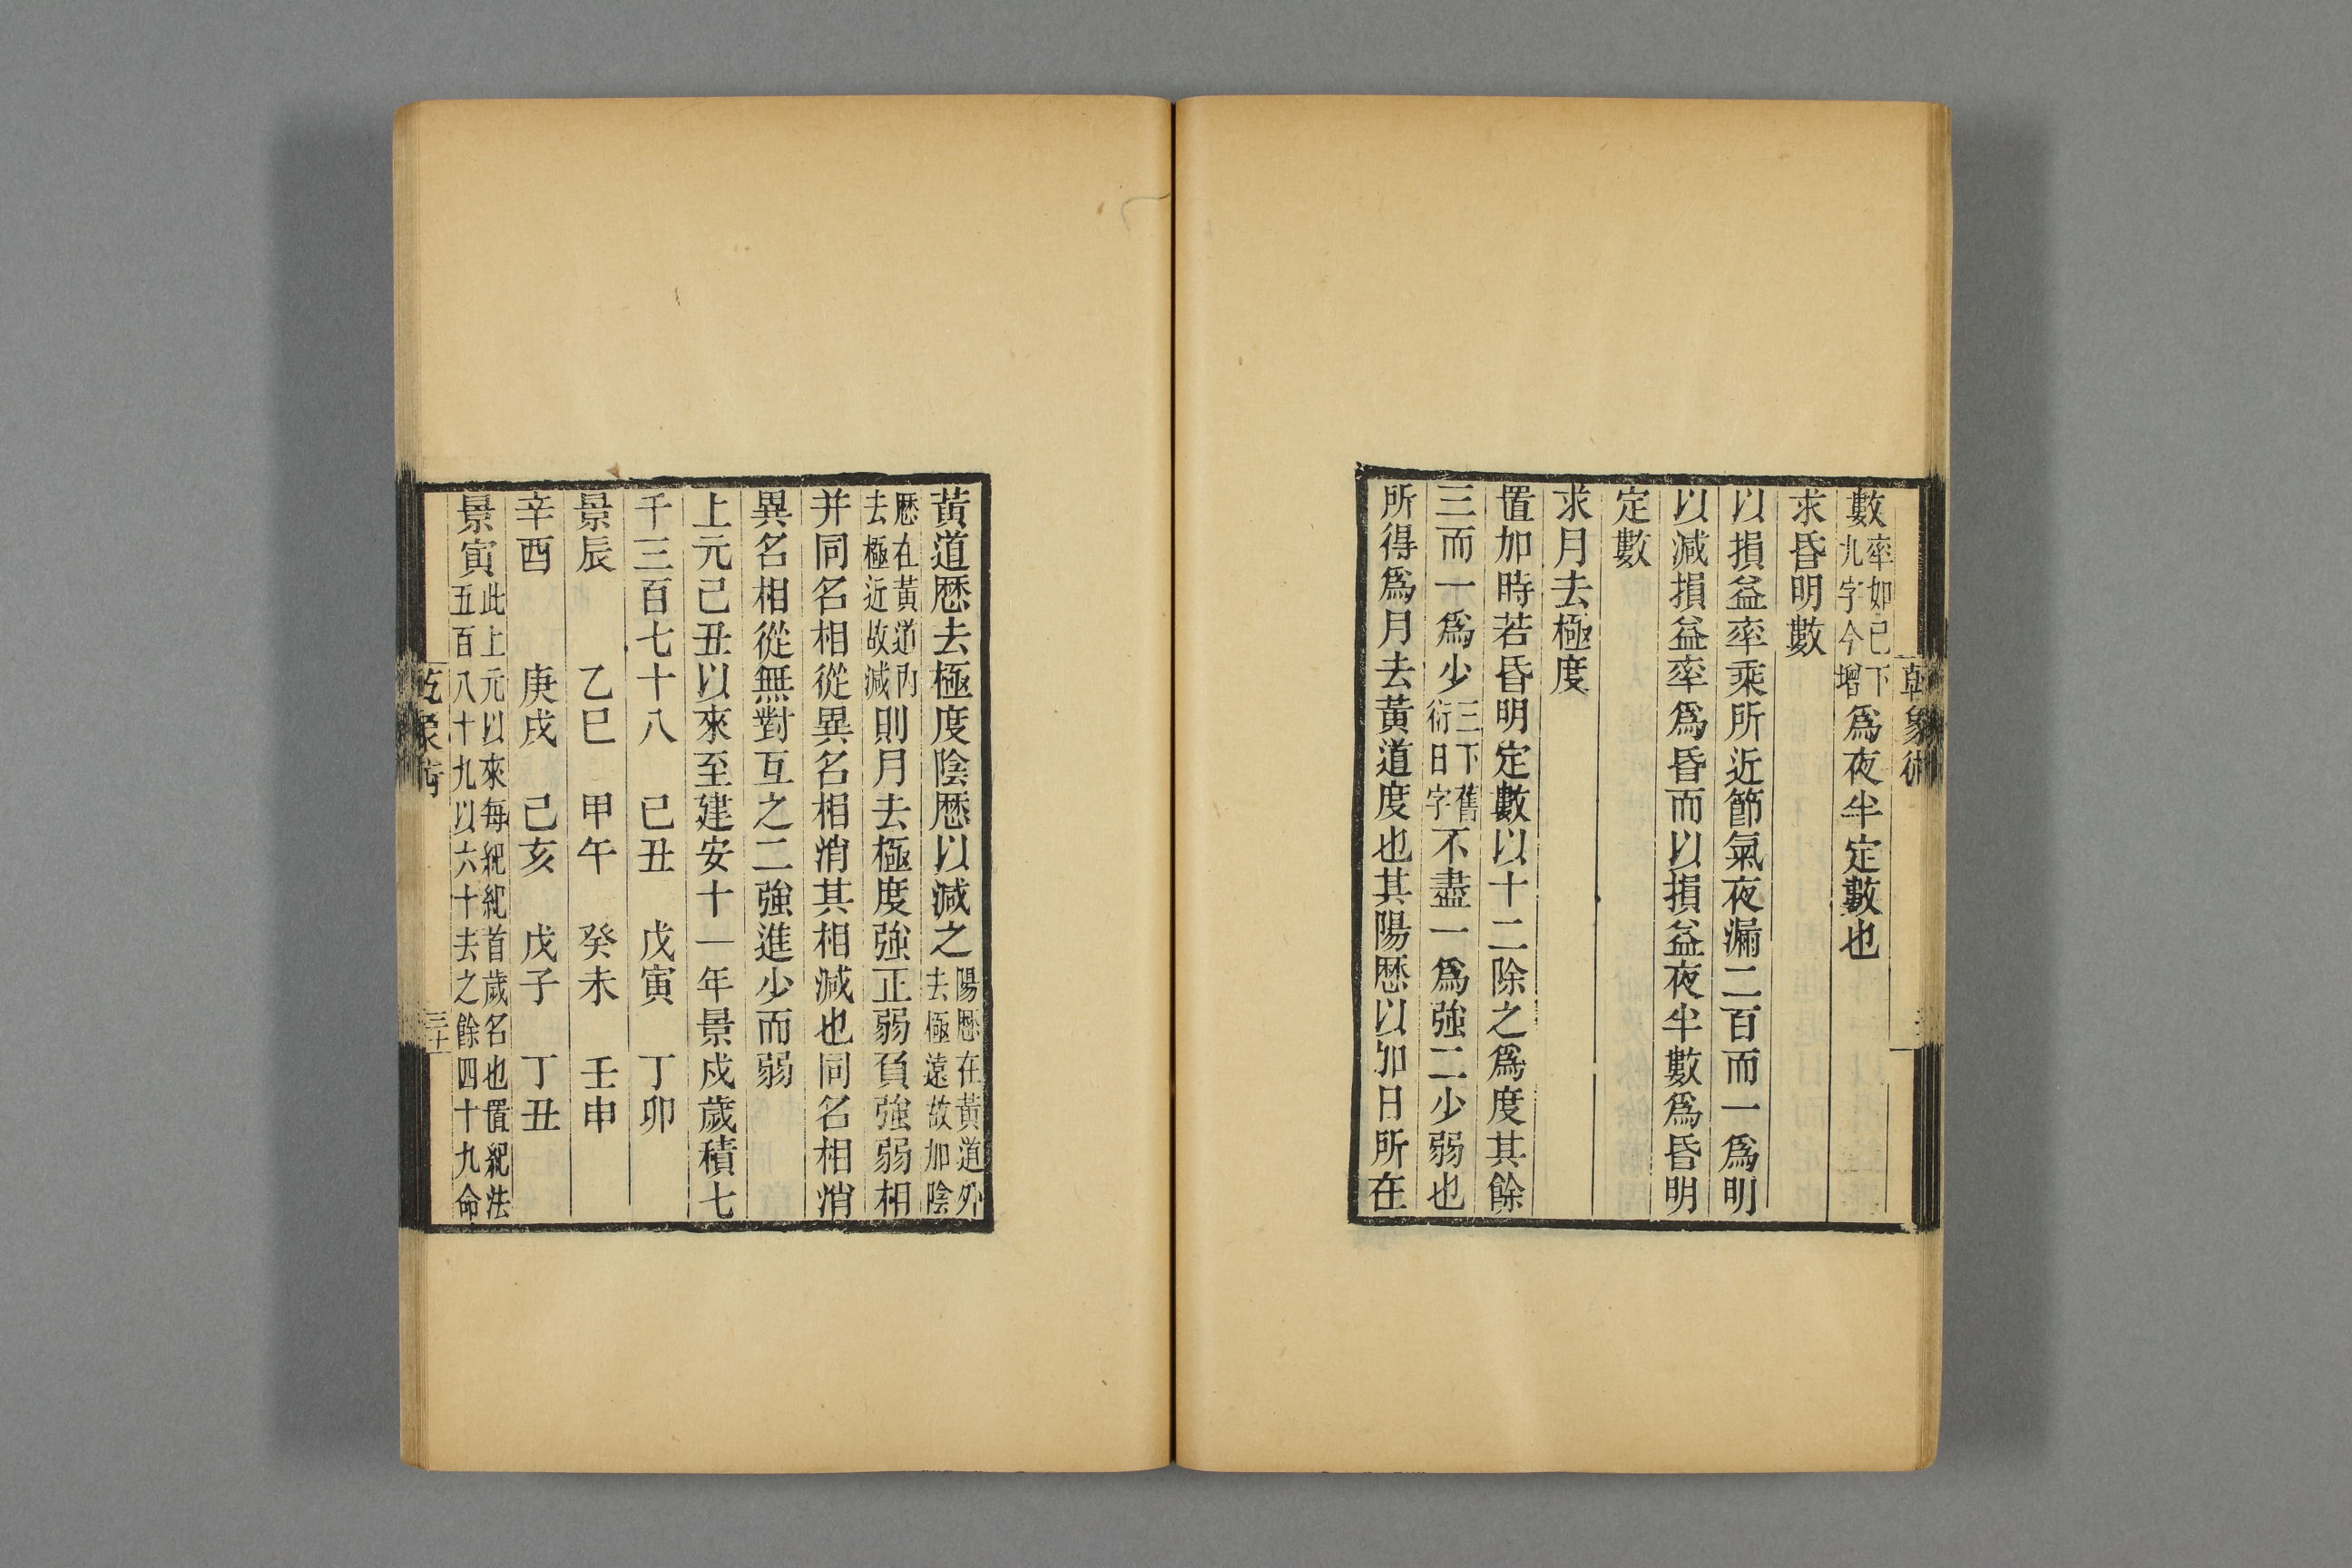 乾象術
數率如已下九字今增爲夜半定數也
求昏明數
以損益率乘所近節氣夜漏二百而一爲明
以減損益率爲昏而以損益夜半數爲昏明
定數
求月去極度
置加時若昏明定數以十二除之爲度其餘
三而一爲少三下舊衍日字不盡一爲強二少弱也
所得爲月去黃道度也其陽厯以加日所在
黃道厯去極度陰厯以減之陽厯在黃道外去極遠故加陰
厯在黃道內去極近故減則月去極度強正弱負強弱相
并同名相從異名相消其相減也同名相消
異名相從無對互之二強進少而弱
上元己丑以來至建安十一年景戍歲積七
千三百七十八 己丑 戊寅 丁卯
景辰 乙巳 甲午 癸未 壬申
辛酉 庚戍 己亥 戊子 丁丑
景寅此上元以來每紀紀首歲名也置紀法五百八十九以六十去之餘四十九命
三十